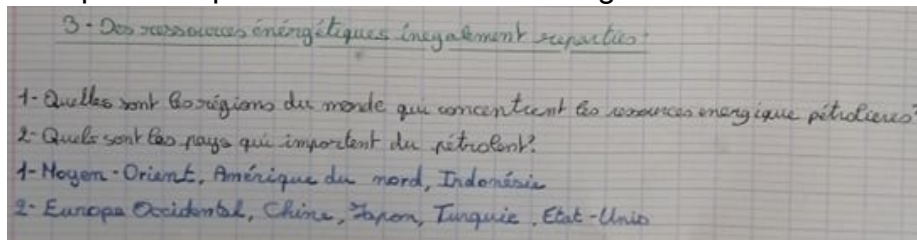 3-Des ressources énérgétiques inegalement reparties
1-Quelles sont les régions du monde qui concentrent les ressources energique pétrolieres?
2-Quels sont les pays qui importent du pétrolent?
1-Moyen-Orient, Amérique du nord, Indonésie
2-Europe Occidental, Chine, Japon, Turquie, Etat-Unis